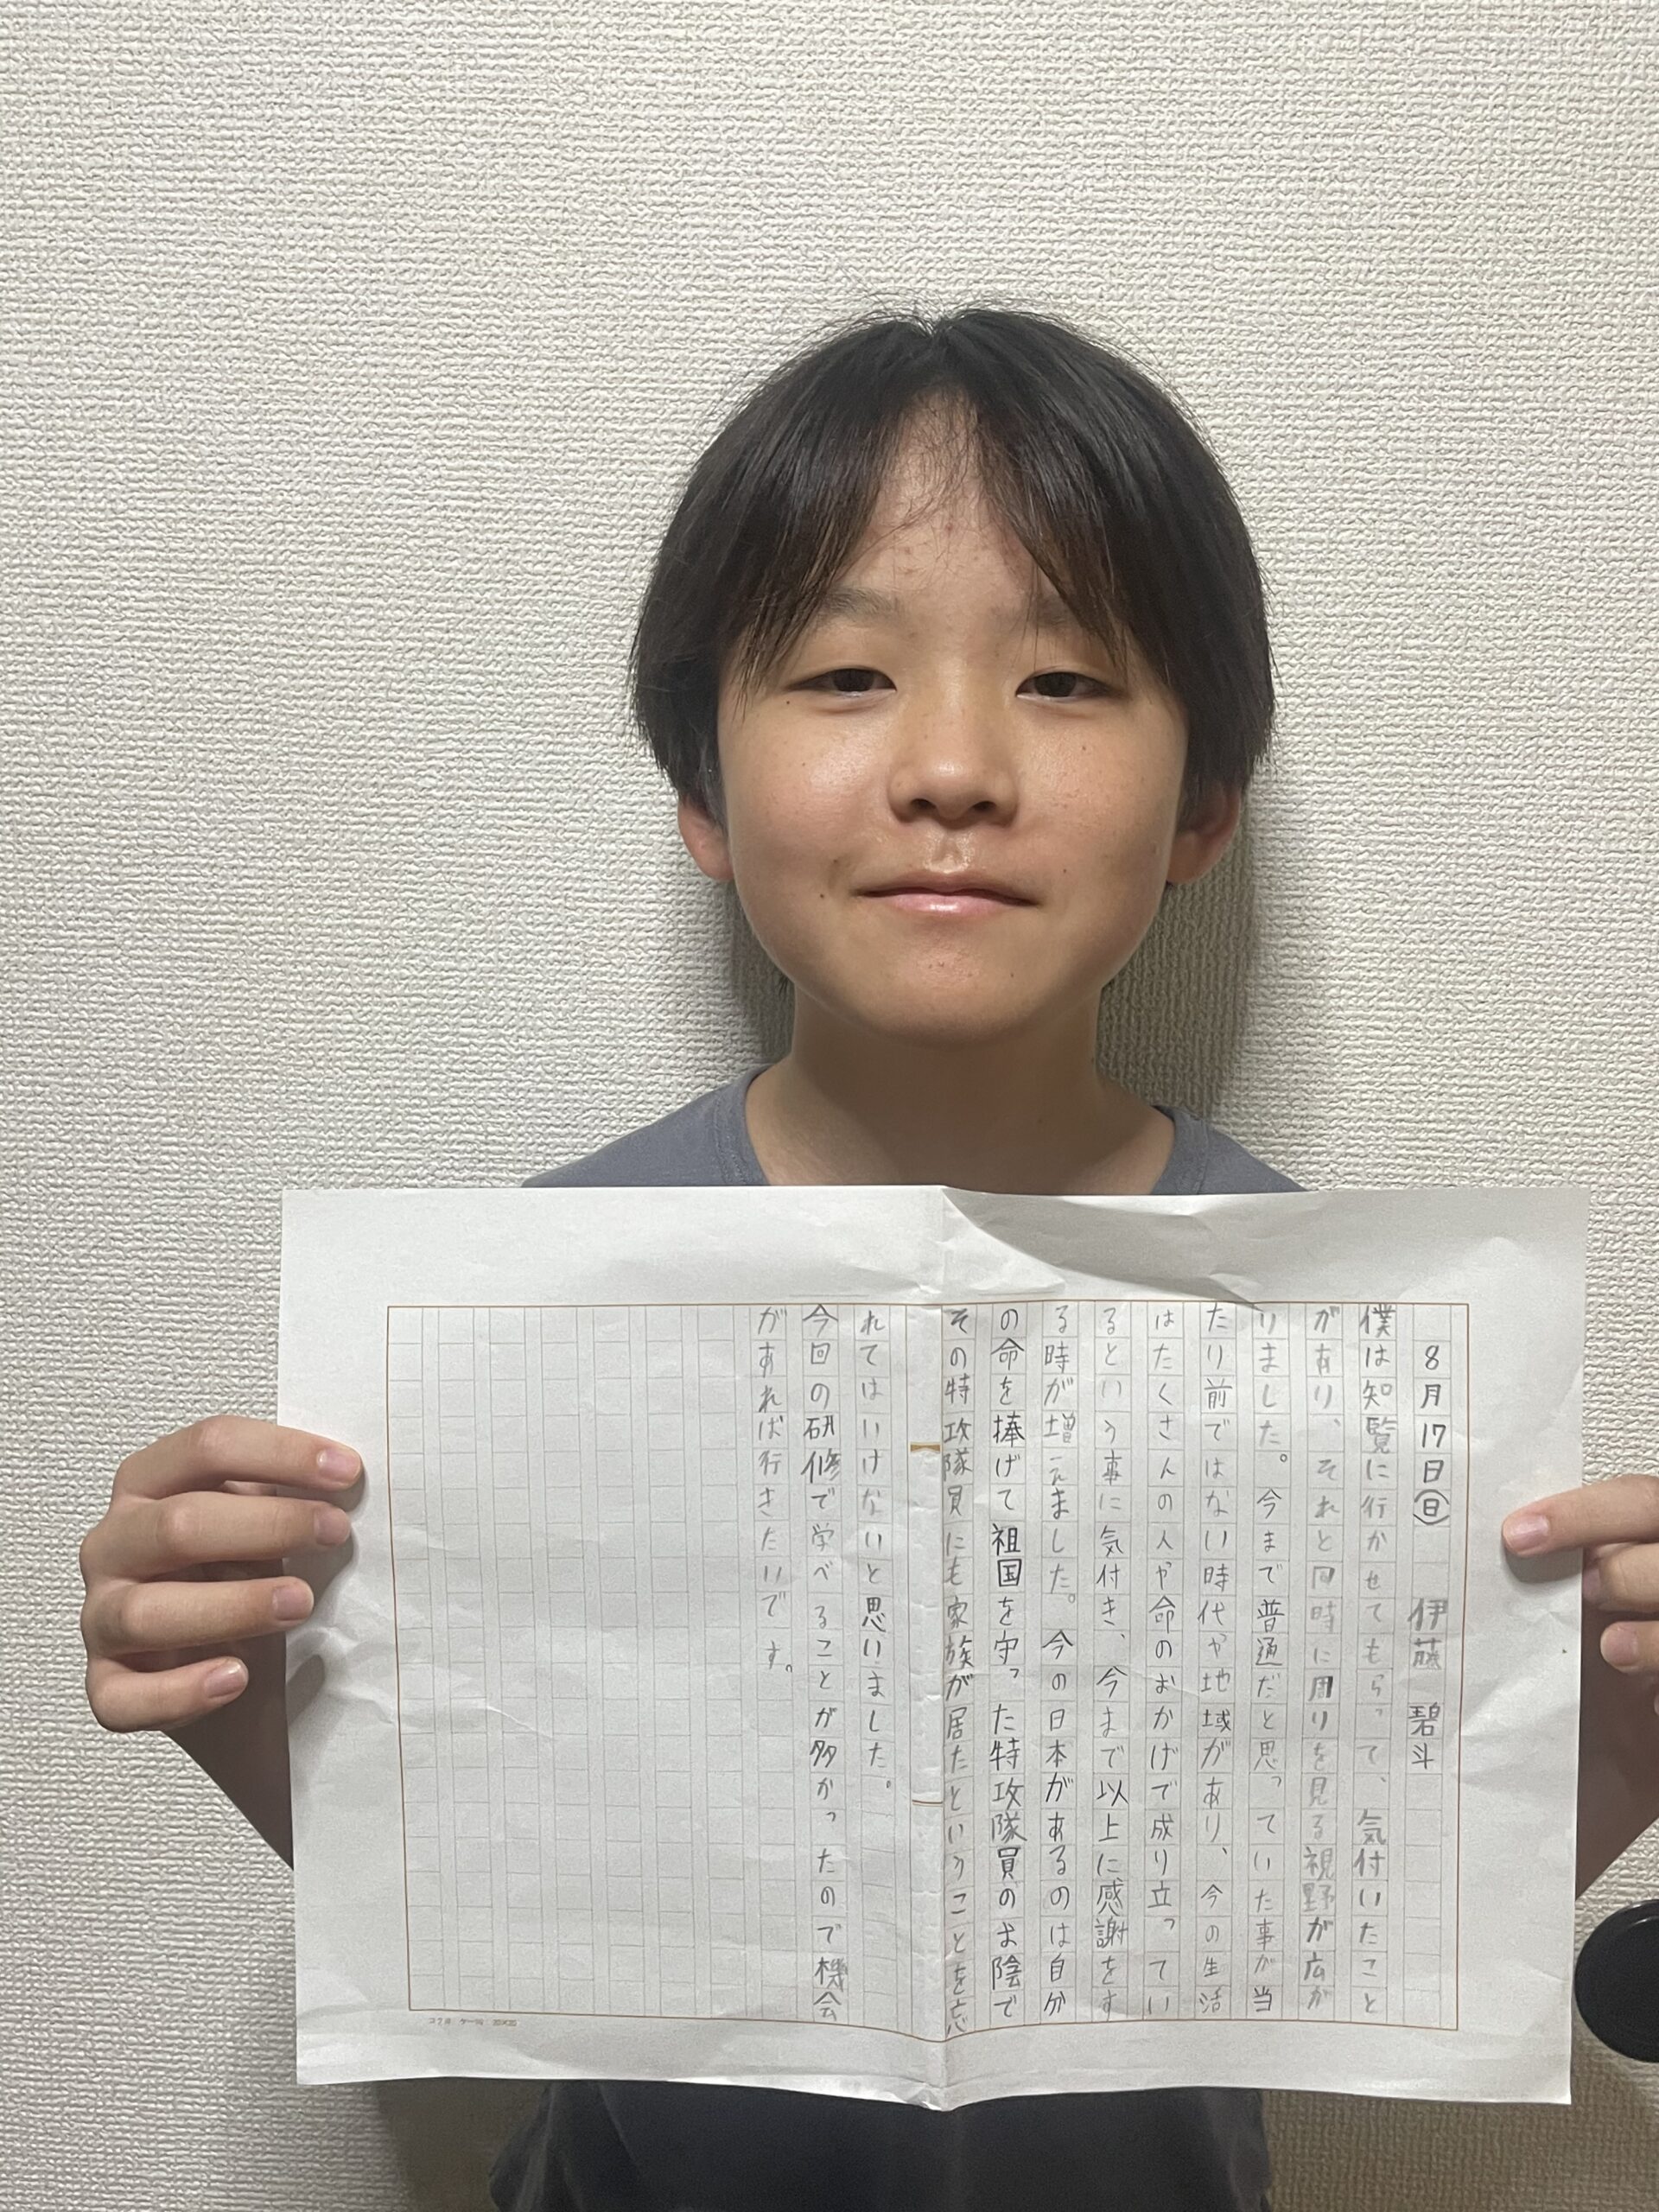 8月17日(日) 伊藤 碧斗
僕は知覧に行かせてもらって、気付いたこと
があり、それと同時に周りを見る視野が広が
りました。今まで普通だと思っていた事が当
たり前ではない時代や地域があり、今の生活
はたくさんの人や命のおかげで成り立ってい
るという事に気付き、今まで以上に感謝をす
る時が増えました。今の日本があるのは自分
の命を捧げて祖国を守った特攻隊員のお陰で
その特攻隊員にも家族が居たということを忘
れてはいけないと思いました。
今回の研修で学べることが多かったので機会
があれば行きたいです。